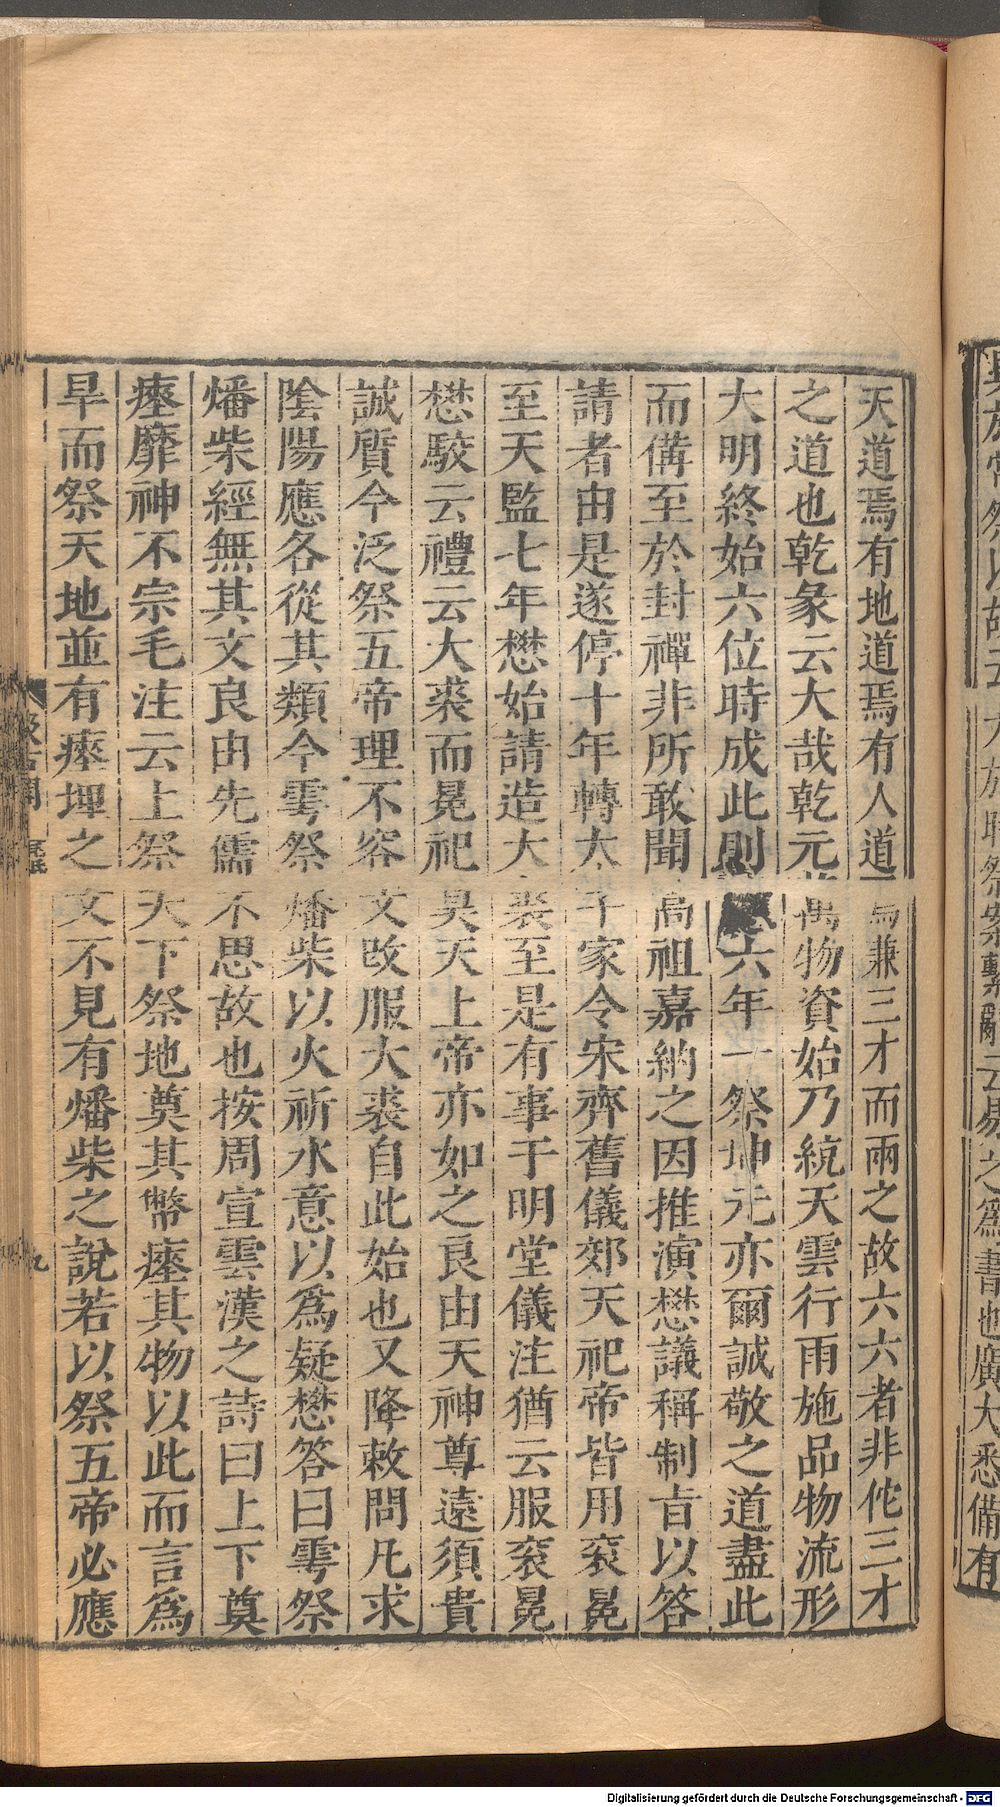 天道焉有地道焉有人道焉兼三才而兩之故六六者非佗三才
之道也乾彖云大哉乾元萬物資始乃統天雲行雨施品物流形
大明終始六位時成此則六年一祭坤元亦爾誠敬之道盡此
而備至於封禪非所敢聞高祖嘉納之因推演懋議稱制旨以答
請者由是遂停十年轉太子家令宋齊舊儀郊天祀帝皆用衮冕
至天監七年懋始請造大裘至是有事于明堂儀注猶云服衮冕
懋駮云禮云大裘而冕祀昊天上帝亦如之良由天神尊遠須貴
誠質今泛祭五帝理不容文改服大裘自此始也又降敕問凡求
陰陽應各從其類今雩祭燔柴以火祈水意以爲疑懋答曰雩祭
燔柴經無其文良由先儒不思故也按周宣雲漢之詩曰上下奠
瘞靡神不宗毛注云上祭天下祭地奠其幣瘞其物以此而言爲
旱而祭天地並有瘞埋之文不見有燔柴之說若以祭五帝必應
九
大於時祭案繫辭云易之爲書也廣大悉備有
Digitalisierung gefördert durch die Deutsche Forschungsgemeinschaft - DFG